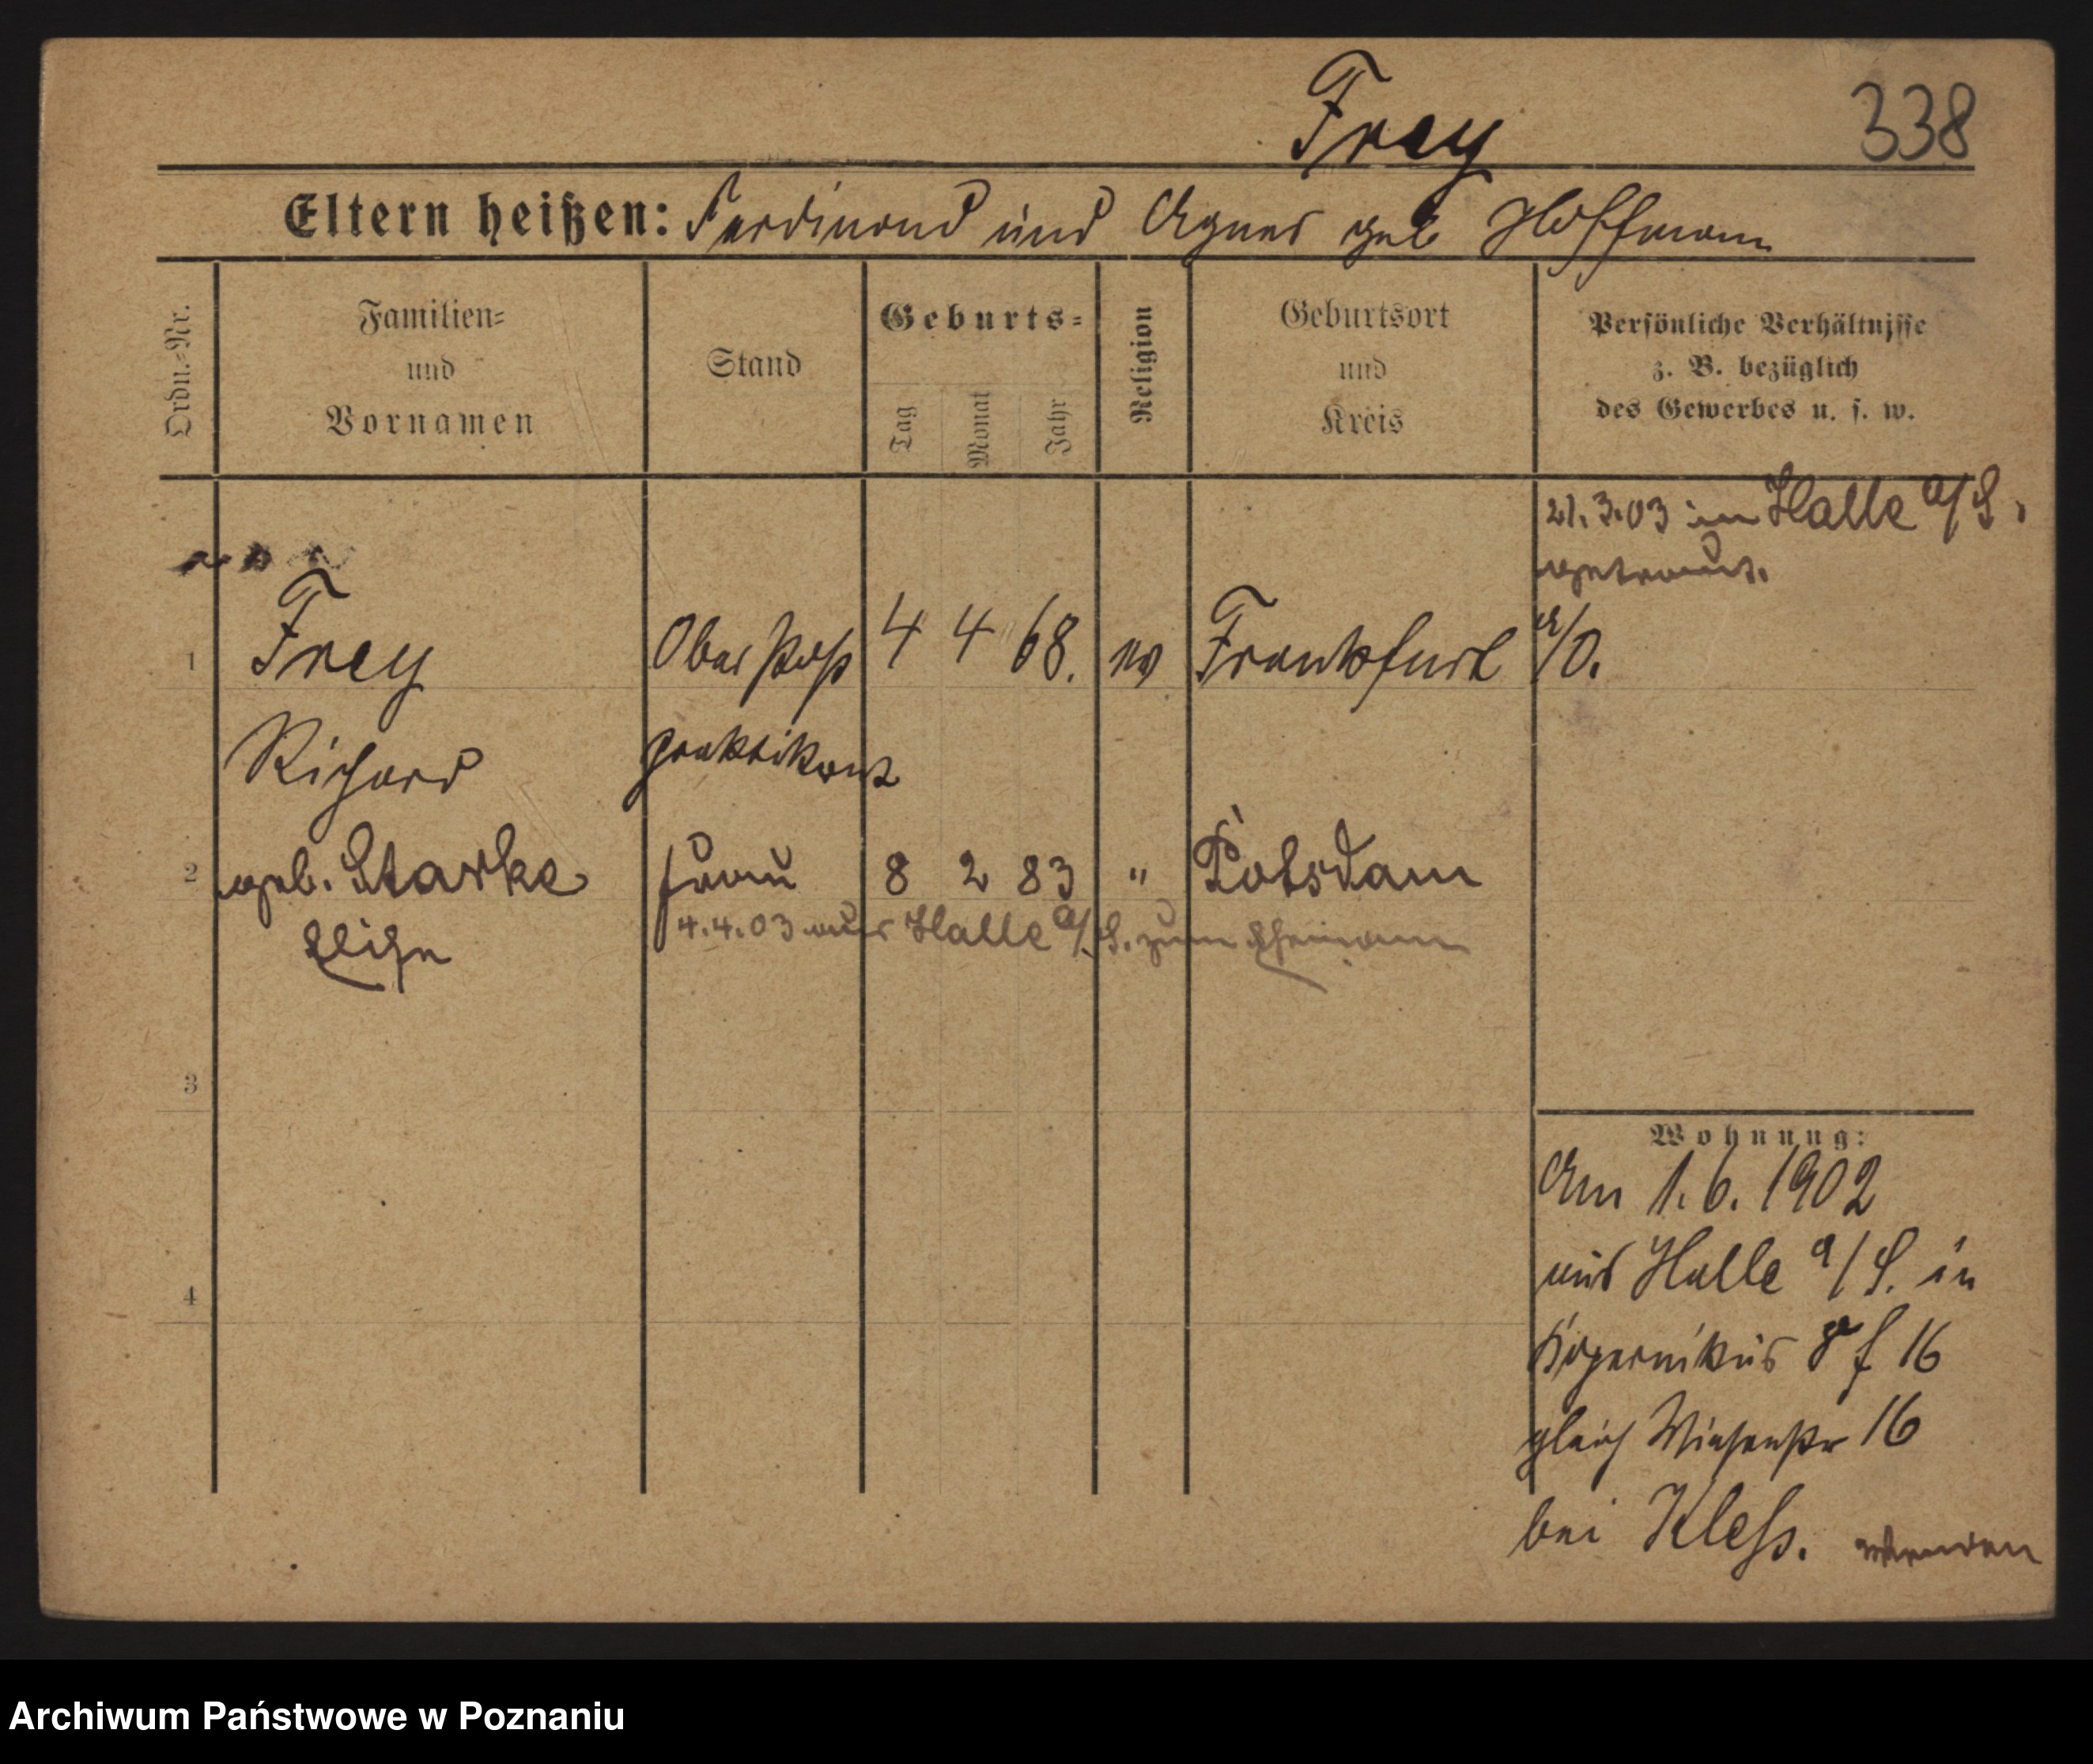 Frey
338
Eltern heißen: Ferdinand und Agnes geb Hoffmann
Ordn.-Nr.
Familien-
und
Vornamen
Stand
Geburts-
Tag
Monat
Jahr
Religion
Geburtsort
und
Kreis
Persönliche Verhältnisse
z. B. bezüglich
des Gewerbes u. s. w.
21.3.03 in Halle a/S.
getraut.
1 Frey Ober Post 4 4 68. ev Frankfurt a/O.
Richard praktikant
2 geb. Starke Frau 8 2 83 " Potsdam
4.4.03 aus Halle a/S. zum Ehemann
3
4
Wohnung:
Am 1.6.1902
aus Halle a/S. in
Kopernikus 16
gleich Wiesenstr 16
bei Kless. wenden
Archiwum Państwowe w Poznaniu